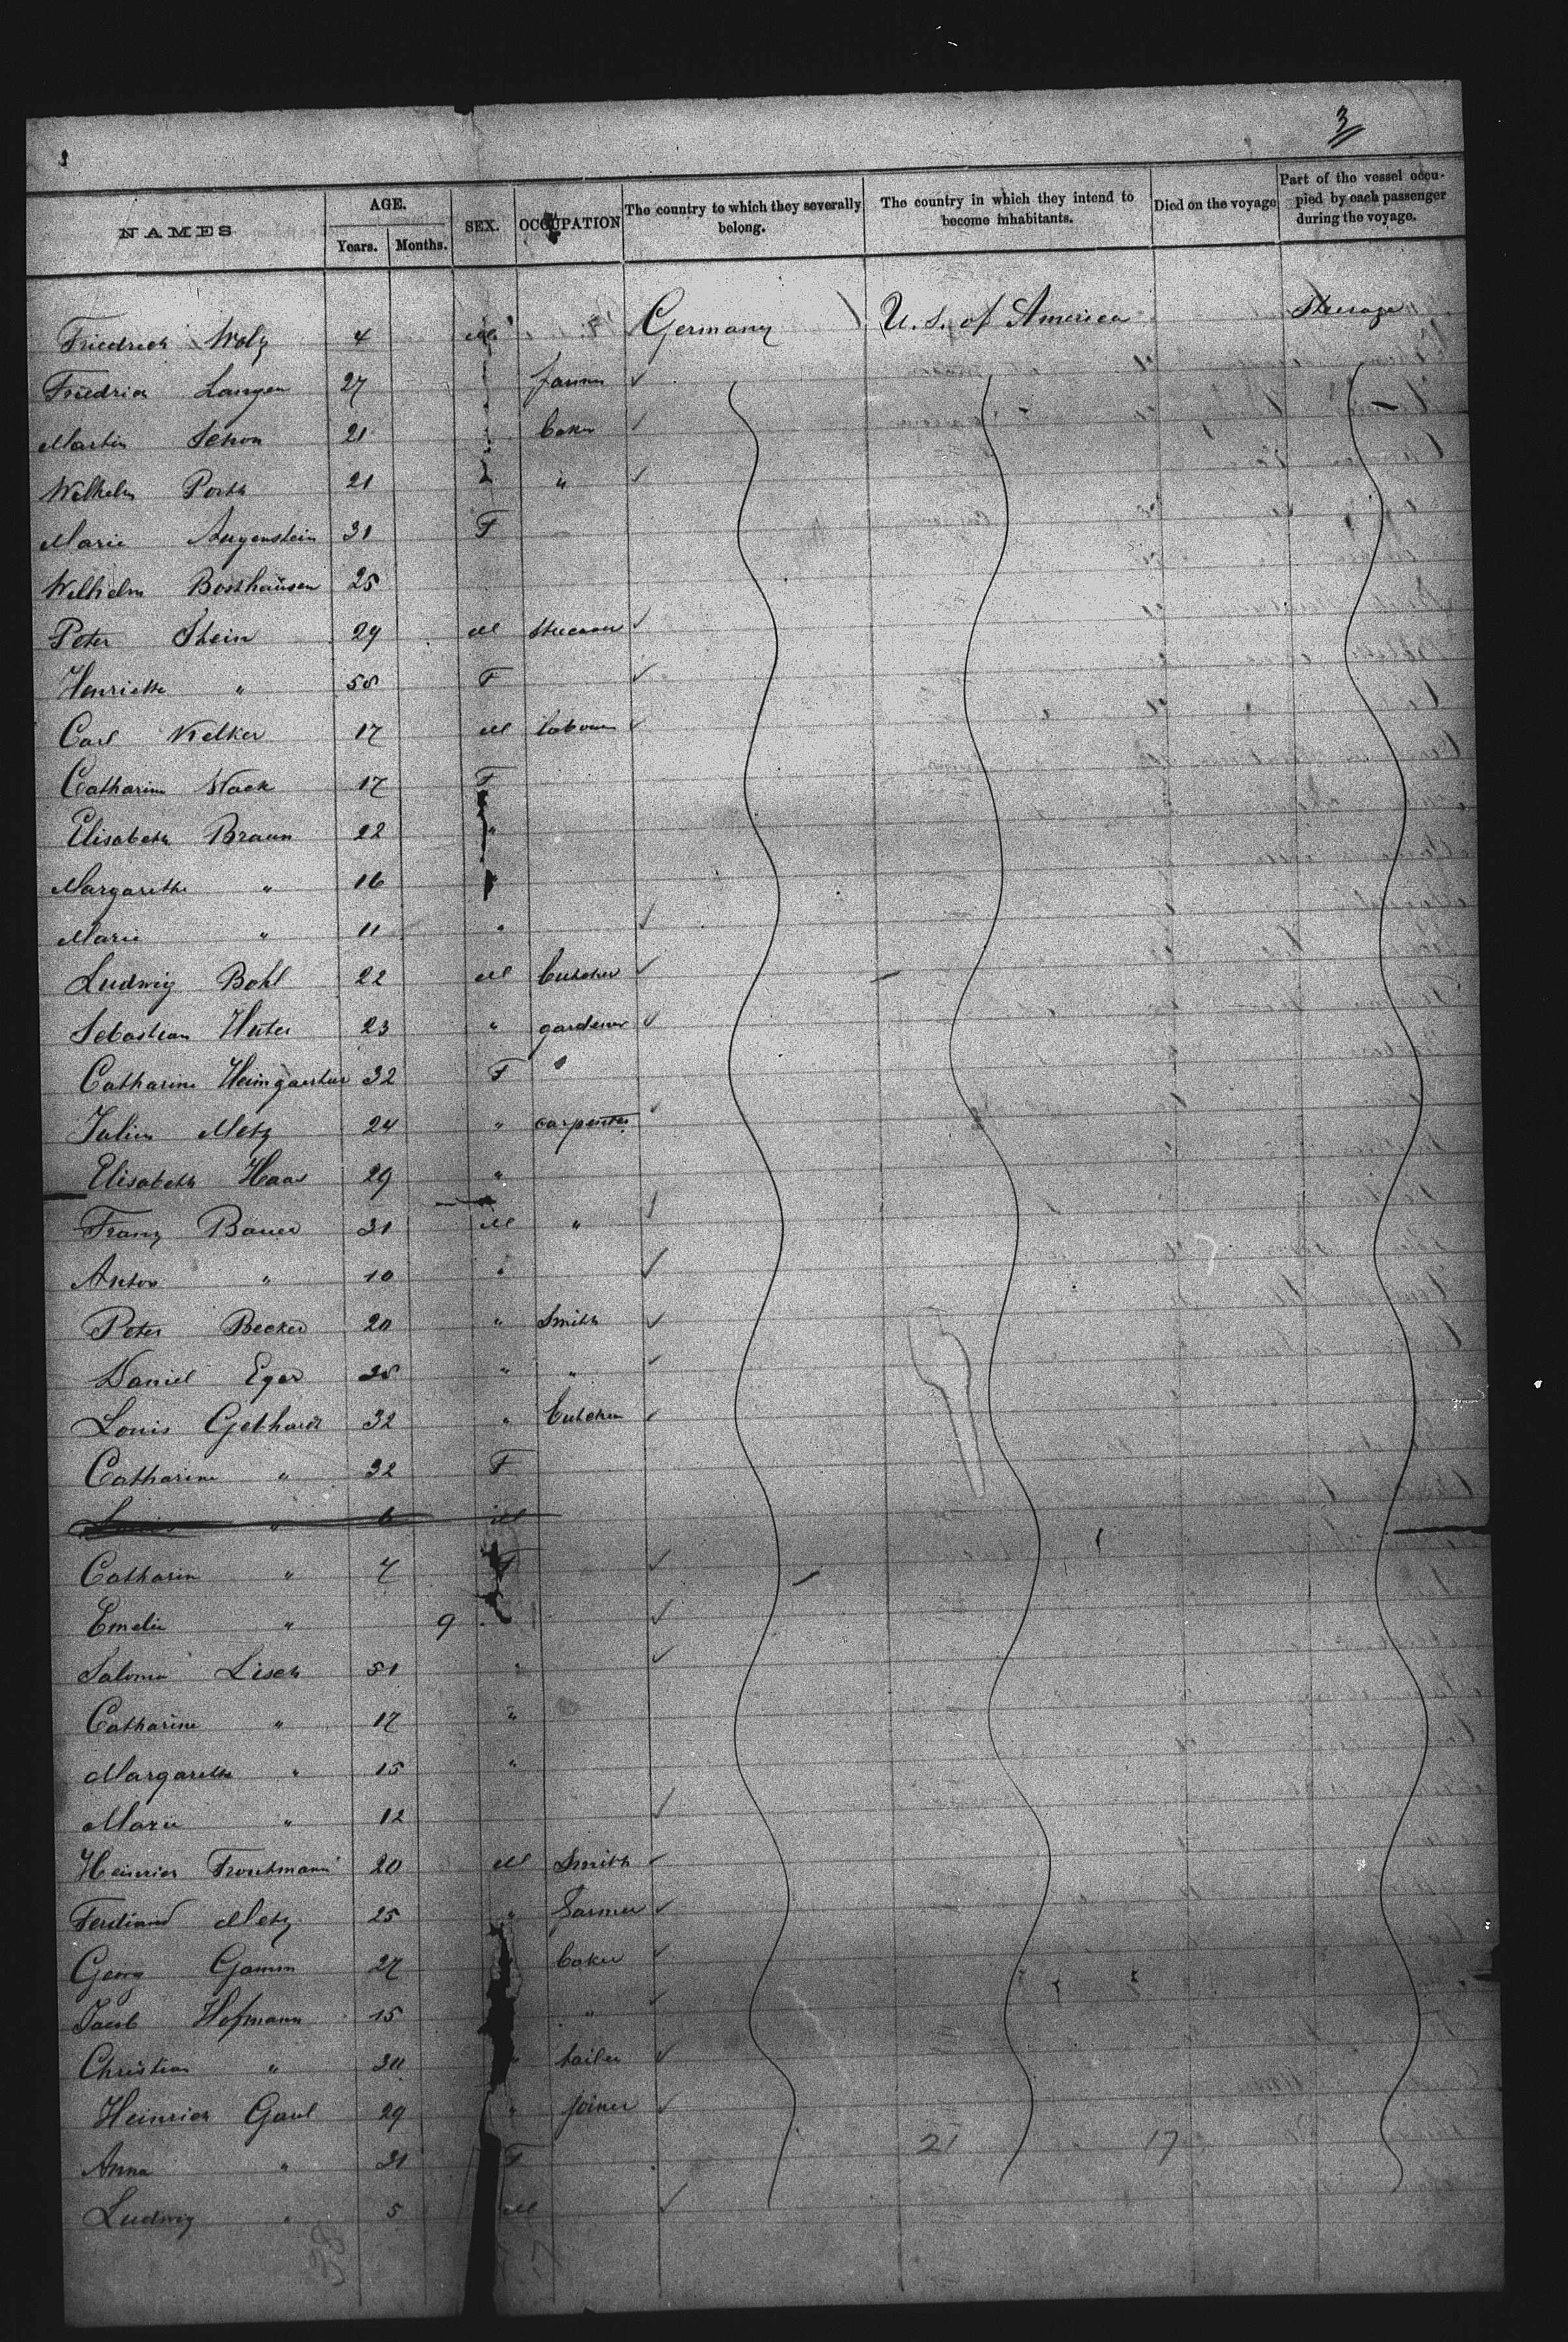 3
NAMES AGE. Years. Months. SEX. OCCUPATION The country to which they severally belong. The country in which they intend to become inhabitants. Died on the voyage Part of the vessel occupied by each passenger during the voyage.
Friedrich 4 M Germany U. S. of America Steerage
Friedrich Langen 27 farmer
Martin 21 baker
Wilhelm Porth 21 "
Marie Augenstein 31 F
Wilhelm Bosshausen 25
Peter Stein 29 M
Henriette " 58 F
Carl 17 M labourer
Catharine 17 F
Elisabeth Braun 22 "
Margarethe " 16 "
Marie " 11 "
Ludwig Bohl 22 M butcher
Sebastian Huter 23 " gardener
Catharine Heimgaertner 32 F
Julius Metz 24 " carpenter
Elisabeth Haas 29 "
Franz Bauer 31 M "
Anton " 10 "
Peter Becker 20 " Smith
Daniel Eger " "
Louis Gebhardt 32 " butcher
Catharine " 32 F
" 6 M
Catharin " 7 F
Emelie " 9
Salome Lisch 51 "
Catharine " 17 "
Margarethe " 15 "
Marie " 12
Heinrich Troutmann 20 M Smith
Ferdinand Metz 25 " farmer
Georg Gamm 27 baker
Jacob Hofmann 15 "
Christian " " tailer
Heinrich Gaul 29 " joiner
Anna " 31 F
Ludwig " 5 M
21 17
38 17